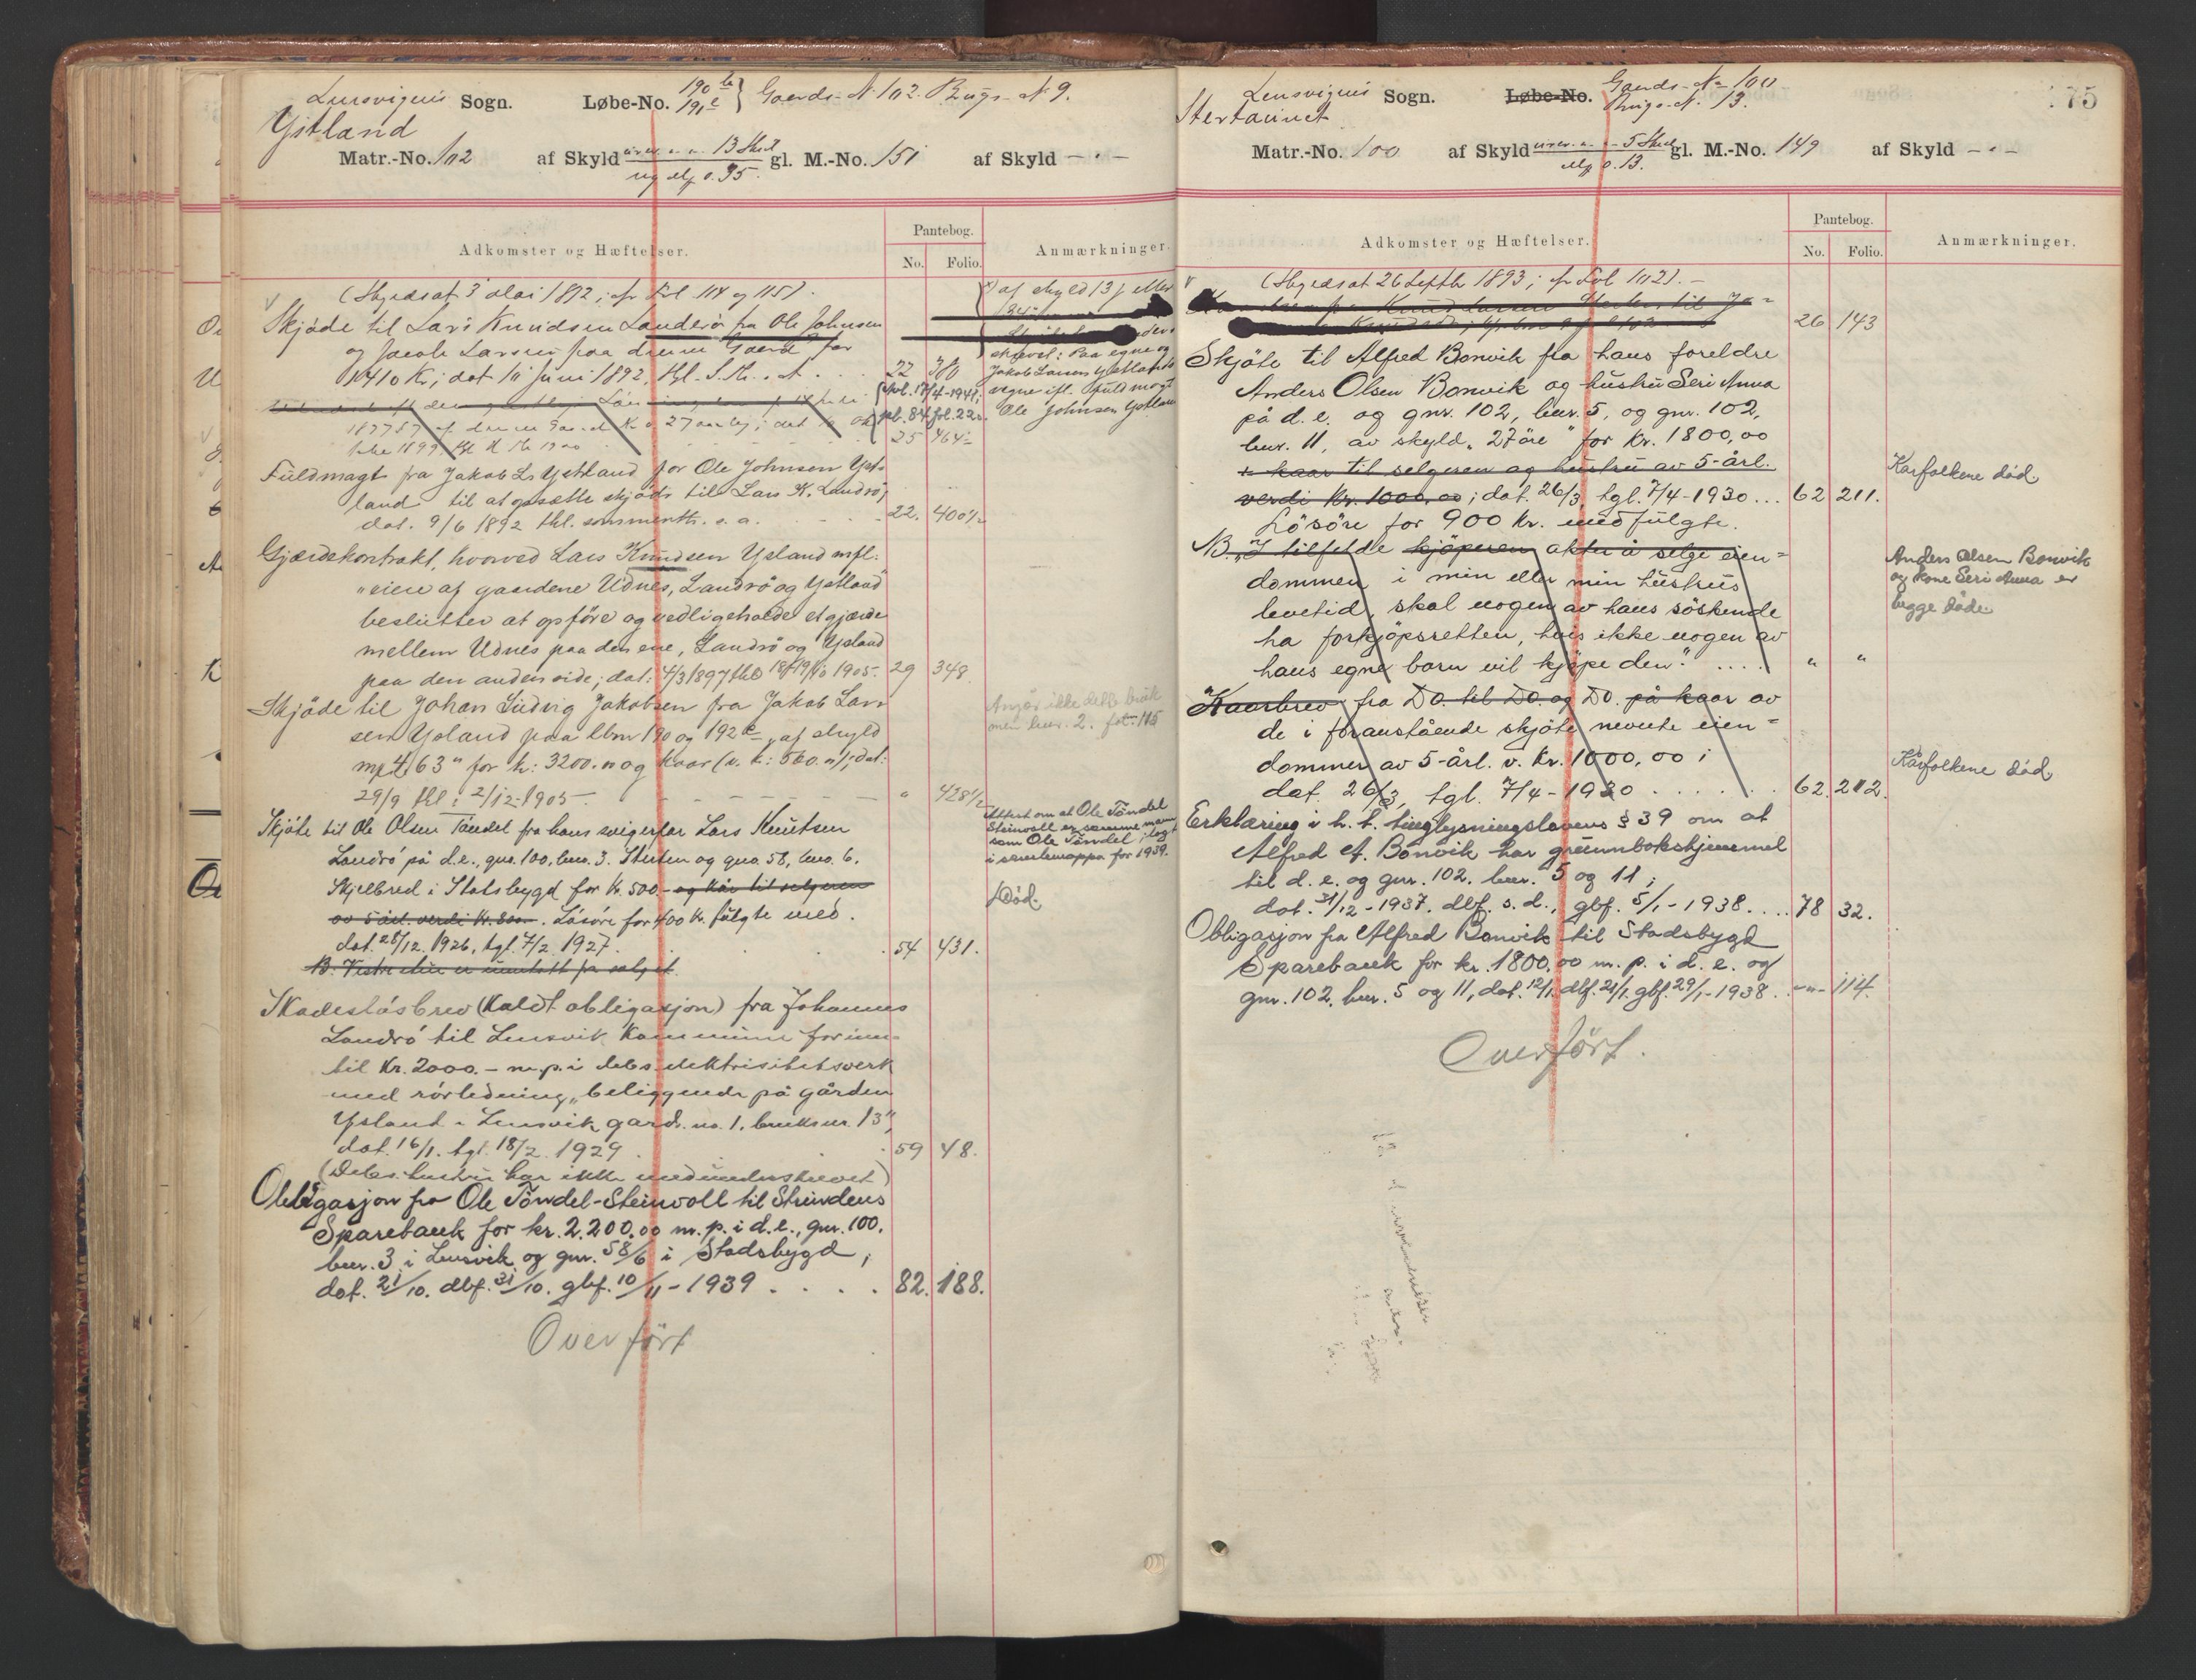 Lensvigens Sogn.
Ystland
Løbe-No. 190 b
191 c } Gaards-N. 102. Brugs-N 9.
Matr.-No. 102 af Skyld 13 Skil gl. M.-No. 151 af Skyld — " —
ny 0.35.
Adkomster og Hæftelser.
Pantebog.
No. Folio.
Anmærkninger.
(Skyldsat 3 Mai 1892; cfr Fol. 114 og 115).
Skjøde til Lars Knudsen Landrø fra Ole Johnsen
og Jacob Larsen paa denne Gaard for
1410 Kr; dat 10 Juni 1892, 22 380
Fuldmagt fra Jakob Ls Ystland for Ole Johnsen Yst-
land til at opsætte skjøde til Lars K. Landrø;
dat. 9/6 1892 thl. s. a. 22. 400 1/2
Gjærdekontrakt, hvorved Lars Knudsen Ysland mfl.
"eiere af gaardene Udnes, Landrø og Ystland"
beslutter at opføre og vedligeholde et gjærde
mellem Udnes paa den ene, Landrø og Ysland
paa den anden side; dat: 4/3 1897 thl 18/19/10 1905. 29 348.
Skjøde til Johan Ludvig Jakobsen fra Jakob Lar-
sen Ysland paa lbnr 190 og 192 c "af skyld
mk 4,63" for kr: 3200.00 og Kaar (v. k: 500.00); dat:
29/9 thl: 2/12-1905. " 428 1/2
Skjøte til Ole Olsen Tøndel fra hans svigerfar Lars Knutsen
Landrø på d.e., gno. 100, bno. 3. Stuten og gno. 58, bno. 6.
Skjelbred i Stadsbygd for Kr. 500.- og kår til selgeren
av 5 årl. verdi Kr. 800-. Løsøre for 400 kr. fulgte med.
dat. 28/12. 1926, tgl. 7/2. 1927. 54 431.
Skadesløsbrev (kaldt obligasjon) fra Johannes
Landrø til Lensvik Kommune for inn-
til Kr. 2000.- m.p. i debs. elektrisitetsverk
med rørledning, "beliggende på gården
Ysland i Lensvik gards. no. 1, bruksnr. 13",
dat. 16/1. tgl. 18/2. 1929 59 48.
(Debs. hustru har ikke medunderskrevet)
Obligasjon fra Ole Tøndel-Steinvoll til Strindens
Sparebank for kr. 2.200,00 m. p. i d.e., gnr. 100.
bnr. 3 i Lensvik og gnr. 58/6 i Stadsbygd;
dat. 21/10. dbf. 31/10. gbf. 10/11 - 1939 . . . . 82. 188.
Overført
af skyld 13
Paa egne og
Jakob Larsen Ystlands
vegne ifl. fuldmagt
Ole Johnsen Ystland
pb. 84 fol. 22
25 464
Angår ikke dette bruk
men bnr. 2. fol. 115
Attest om at Ole Tøndel
Steinvoll er samme mann
som Ole Tøndel, ilagt
i samlemappa for 1939.
Død.
Lensvigens Sogn.
Stertaunet
Løbe-No. Gaards-No 100
Brugs-N. 13.
175
Matr.-No. 100 af Skyld 5 Skil gl. M.-No. 149 af Skyld — " —
0.13.
Adkomster og Hæftelser.
Pantebog.
No. Folio.
Anmærkninger.
(Skyldsat 26 Septbr 1893; cfr Fol 102).—
26 143
Skjøte til Alfred Bonvik fra hans foreldre
Anders Olsen Bonvik og hustru Seri Anna
på d. e. og gnr. 102, bnr. 5, og gnr. 102,
bnr. 11, av skyld "27 øre" for Kr. 1800,00
+ kaar til selgeren og hustru av 5-årl.
verdi Kr. 1000,00; dat. 26/3, tgl. 7/4-1930... 62 211.
Løsøre for 900 Kr. medfulgte.
Karfolkene død.
NB. "I tilfelde kjøperen akter å selge eien-
dommen i min eller min hustrus
levetid, skal nogen av hans søskende
ha forkjøpsretten, hvis ikke nogen av
hans egne barn vil kjøpe den". .... " "
Anders Olsen Bonvik
og kone Seri Anna er
begge døde
Kaarbrev fra Do. til Do. og Do. på kaar av
de i foranstående skjøte nevnte eien-
dommer av 5-årl. v. Kr. 1000,00;
dat. 26/3, tgl. 7/4-1930 . . . . . . . 62. 212.
Karfolkene død
Erklæring i h. t. tinglysningslovens § 39 om at
Alfred A. Bonvik har grunnbokshjemmel
til d. e. og gnr. 102. bnr. 5 og 11;
dat. 31/12-1937. dbf. s. d., gbf. 5/1-1938. ... 78 32.
Obligasjon fra Alfred Bonvik til Stadsbygd
Sparebank for kr. 1800,00 m. p. i d. e. og
gnr. 102, bnr. 5 og 11, dat. 12/1. dbf. 21/1. gbf. 29/1-1938. -"- 114.
Overført.